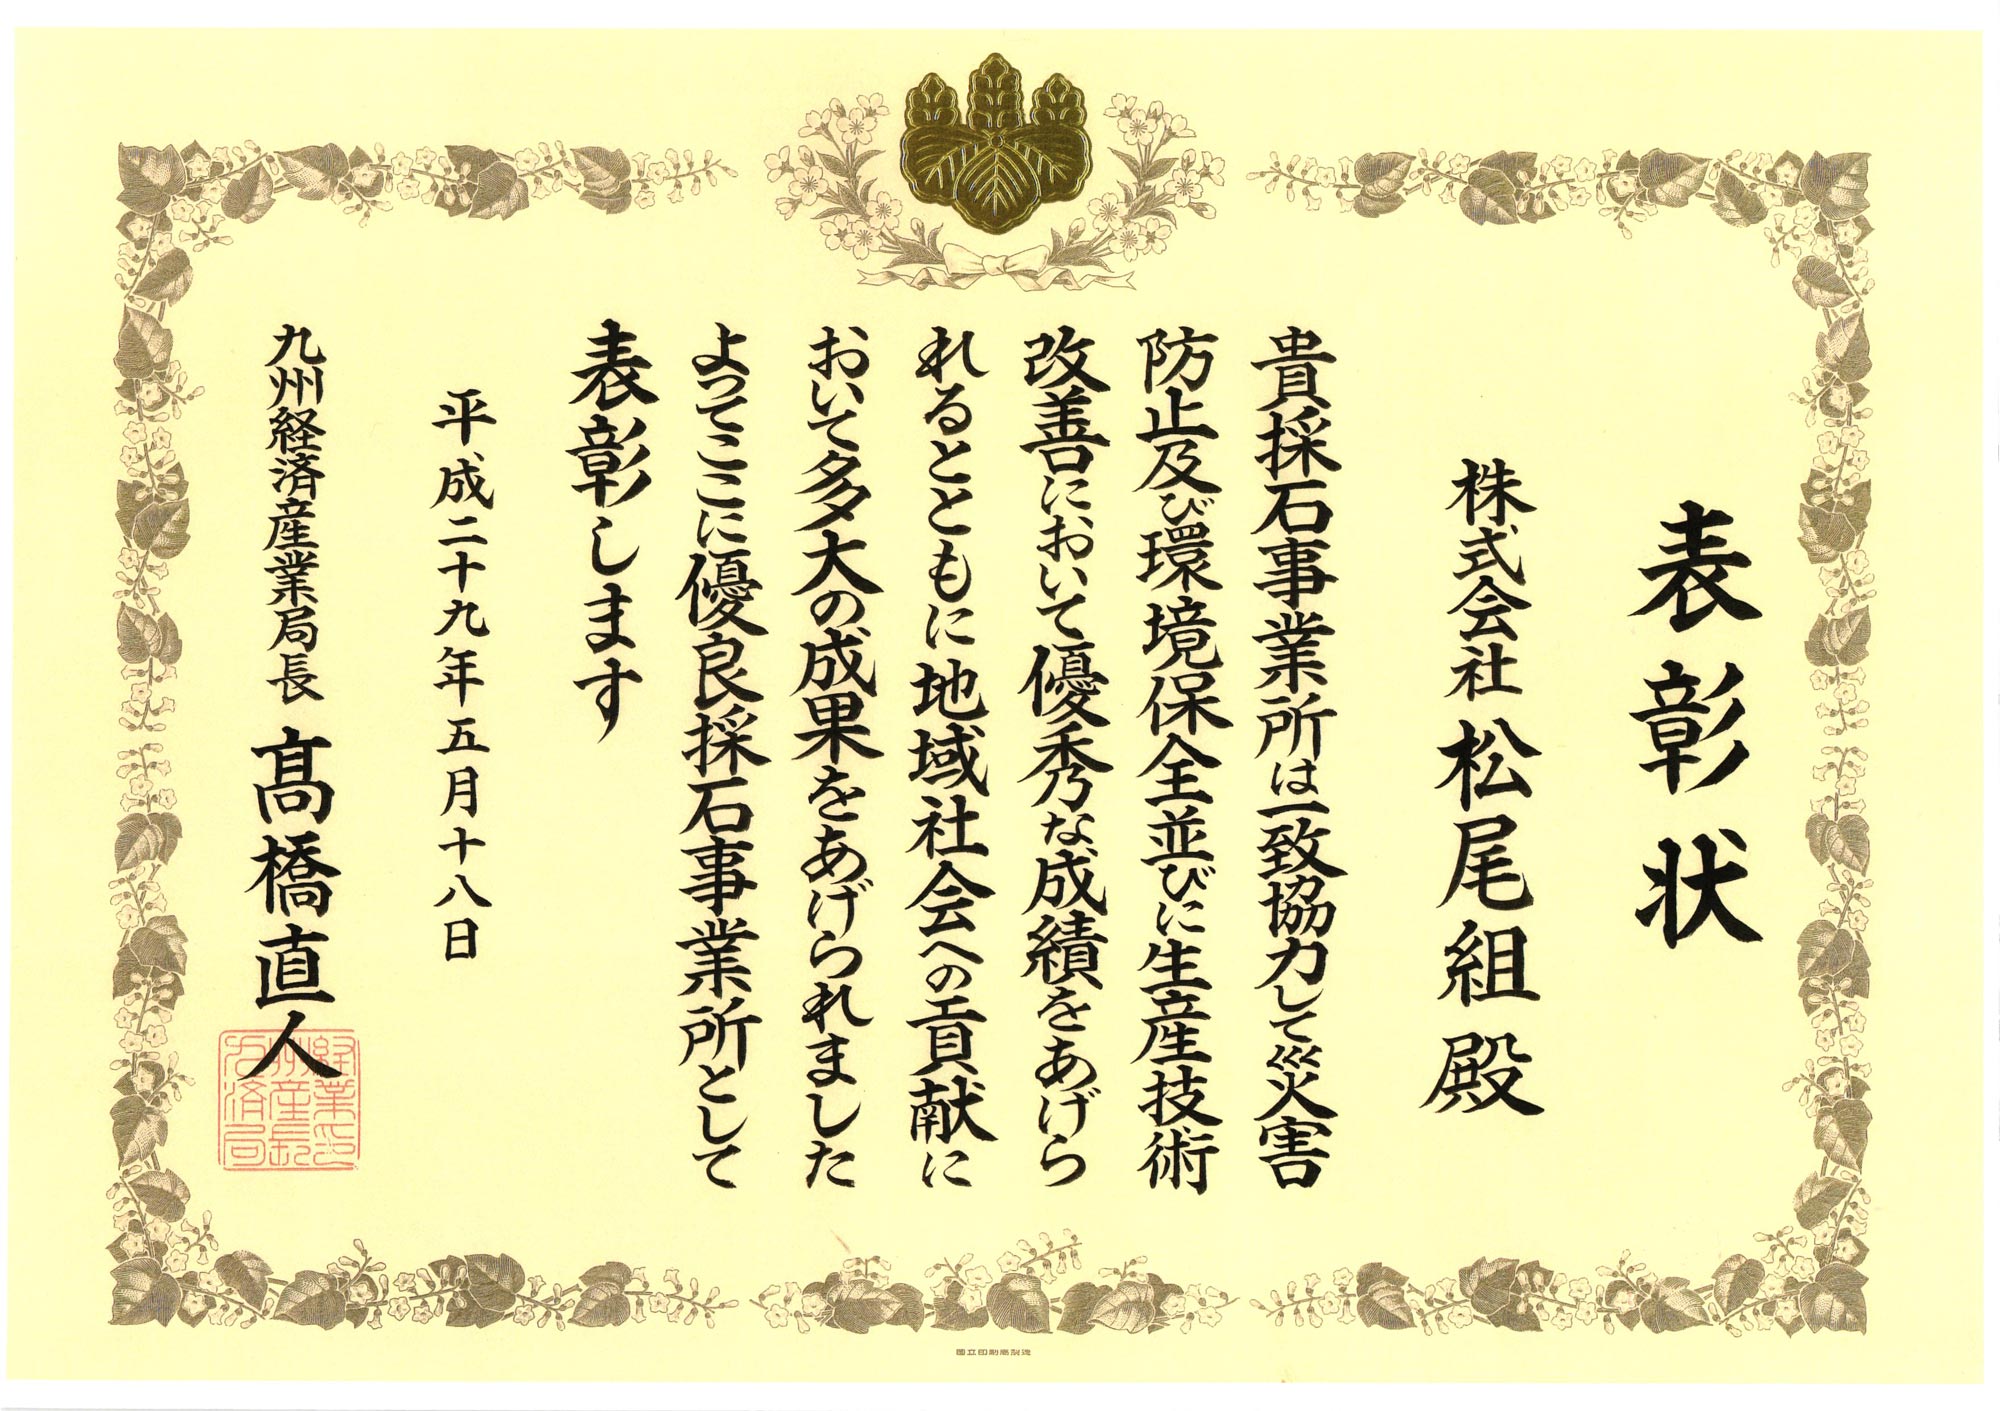 表彰状
株式会社 松尾組殿
貴採石事業所は一致協力して災害
防止及び環境保全並びに生産技術
改善において優秀な成績をあげら
れるとともに地域社会への貢献に
おいて多大の成果をあげられました
よってここに優良採石事業所として
表彰します
平成二十九年五月十八日
九州経済産業局長 髙橋直人
経業印
州産長
九済局
国立印刷局製造